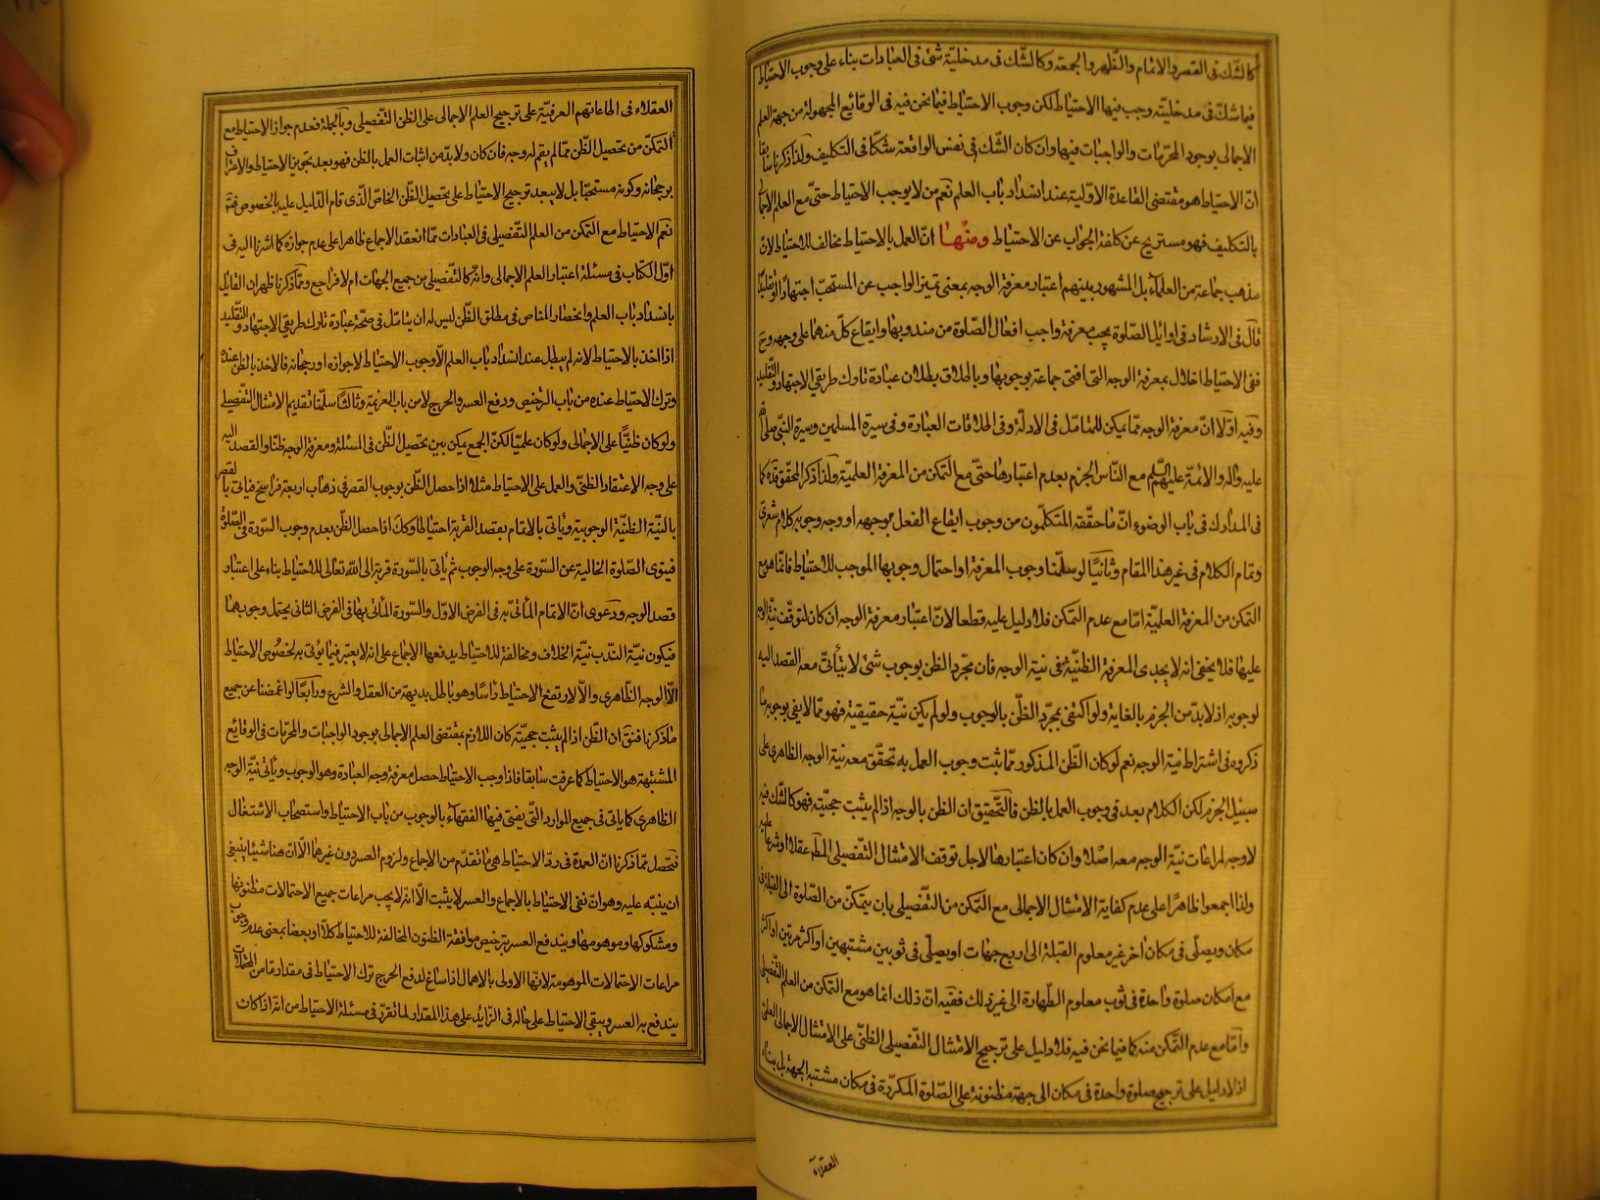 كالشّك فى القصر والاتمام والظّهر والجمعة وكالشّك فى مدخليّة شئ فى العبادات بناء على وجوب الاحتياط
فيما شك فى مدخليّته وجب فيها الاحتياط لكن وجوب الاحتياط فيما نحن فيه فى الوقائع المجهولة من جهة العلم
الاجمالى بوجود المحرّمات والواجبات فيها وان كان الشّك فى نفس الواقعة شكّا فى التكليف ولذا ذكرنا سابقا
انّ الاحتياط هو مقتضى القاعدة الاوّلية عند انسداد باب العلم نعم من لا يوجب الاحتياط حتّى مع العلم الاجمالى
بالتكليف فهو مستريح عن كلفة الجواب عن الاحتياط ومنها انّ العمل بالاحتياط مخالف للاحتياط لانّ
مذهب جماعة من العلماء بل المشهور بينهم اعتبار معرفة الوجه بمعنى تميز الواجب عن المستحبّ اجتهادا او تقليدا
قال فى الارشاد فى اوايل الصّلوة يجب معرفة واجب افعال الصّلوة من مندوبها وايقاع كلّ منهما على وجهه وح
ففى الاحتياط اخلال بمعرفة الوجه التى افتى جماعة بوجوبها وباطلاق بطلان عبادة تارك طريقى الاجتهاد والتّقليد
وفيه اوّلا انّ معرفة الوجه ممّا يمكن للمتامّل فى الادلّة وفى اطلاقات العبادة وفى سيرة المسلمين وسيرة النبّى صلى الله
عليه وآله والائمّة عليهم السّلم مع النّاس الجزم بعدم اعتبارها حتّى مع التمكن من المعرفة العلميّة ولذا ذكر المحقّق قده كما
فى المدارك فى باب الوضوء انّ ما حقّقه المتكلّمون من وجوب ايقاع الفعل بوجهه او وجه وجوبه كلام شعرى
وتمام الكلام فى غير هذا المقام وثانيًا لو سلّمنا وجوب المعرفة او احتمال وجوبها الموجب للاحتياط فانّما هو مع
التمكن من المعرفة العلميّة امّا مع عدم التمكن فلا دليل عليه قطعا لانّ اعتبار معرفة الوجه ان كان لتوقّف نيّة الوجه
عليها فلا يخفى انه لا يجدى المعرفة الظنّيّة فى نية الوجه فان مجرّد الظن بوجوب شئ لا يتأتّى معه القصد اليه
لوجوبه اذ لا بدّ من الجزم بالغاية ولو اكتفى بمجرّد الظّن بالوجوب ولو لم يكن نيّة حقيقيّة فهو ممّا لا يفى بوجوبه ما
ذكروه فى اشتراط نية الوجه نعم لو كان الظّن المذكور ممّا ثبت وجوب العمل به تحقّق معه نية الوجه الظاهرى على
سبيل الجزم لكن الكلام بعد فى وجوب العمل بالظن فالتّحقيق ان الظن بالوجه اذا لم يثبت حجيّته فهو كالشّك فيه
لا وجه لمراعات نيّة الوجه معه اصلا وان كان اعتبارها لاجل توقف الامتثال التّفصيلى المط عقلا او شرعا عليه
ولذا اجمعوا ظاهرًا على عدم كفاية الامتثال الاجمالى مع التمكن من التفصيلى بان يتمكّن من الصّلوة الى القبلة فى
مكان ويصلّى فى مكان اخر غير معلوم القبلة الى اربع جهات او يصلّى فى ثوبين مشتبهين او اكثر مرتين او اكثر
مع امكان صلوة واحدة فى ثوب معلوم الطّهارة الى غير ذلك ففيه انّ ذلك انما هو مع التمكن من العلم التّفصيلى
وامّا مع عدم التّمكن منه كما فيما نحن فيه فلا دليل على ترجيح الامتثال التّفصيلى الظنّى على الامتثال الاجمالى العلمى
اذ لا دليل على ترجيح صلوة واحدة فى مكان الى جهة مظنونة على الصّلوة المكرّرة فى مكان مشتبه الجهة بل بناء
العقلاء
العقلاء فى اطاعاتهم العرفيّة على ترجيح العلم الاجمالى على الظن التّفصيلى وبالجملة فعدم جواز الاحتياط مع
التمكّن من تحصيل الظّن ممّا لم يقم له وجه فان كان ولا بدّ من اثبات العمل بالظن فهو بعد تجويز الاحتياط والاعتراف
برجحانه وكونه مستحبّا بل لا يبعد ترجيح الاحتياط على تحصيل الظّن الخاصّ الّذى قام الدّليل عليه بالخصوص فتم
نعم الاحتياط مع التمكن من العلم التّفصيلى فى العبادات ممّا انعقد الاجماع ظاهرا على عدم جوازه كما اشرنا اليه فى
اوّل الكتاب فى مسئلة اعتبار العلم الاجمالى وانّه كالتّفصيلى من جميع الجهات ام لا فراجع وممّا ذكرنا ظهر ان القايل
بانسداد باب العلم وانحصار المناص فى مطلق الظّن ليس له ان يتامّل فى صحّة عبادة تارك طريقى الاجتهاد والتّقليد
اذا اخذ بالاحتياط لانه لم يبطل عند انسداد باب العلم الّا وجوب الاحتياط لا جوازه او رجحانه فالاخذ بالظن عنده
وترك الاحتياط عنده من باب الترخيص ودفع العسر والحرج لا من باب العزيمة وثالثًا سلّمنا تقديم الامتثال التّفصيلى
ولو كان ظنّيًّا على الاجمالى ولو كان علميّا لكنّ الجمع يمكن بين تحصيل الظّن فى المسئلة ومعرفة الوجه ظنّا والقصد اليه
على وجه الاعتقاد الظنّى والعمل على الاحتياط مثلا اذا حصل الظّن بوجوب القصر فى ذهاب اربعة فراسخ فياتى بالقصر
بالنيّة الظنيّة الوجوبية وياتى بالاتمام بقصد القربة احتياطا وكك اذا حصل الظّن بعدم وجوب السّورة فى الصّلوة
فينوى الصّلوة الخالية عن السّورة على وجه الوجوب ثم يأتى بالسّورة قربة الى الله تعالى للاحتياط بناء على اعتبار
قصد الوجه ودعوى انّ الاتمام المأتىّ به فى الفرض الاوّل والسّورة المأتى بها فى الفرض الثانى يحتمل وجوبهما
فيكون نيّة النّدب نيّة الخلاف ومخالفة للاحتياط يدفعها الاجماع على انه لا يعتبر فيما يؤتى به لخصوص الاحتياط
الّا الوجه الظّاهرى والّا لارتفع الاحتياط رأسًا وهو باطل بديهة من العقل والشّرع ورابعًا لو اغمضنا عن جميع
ما ذكرنا فنق ان الظّن اذا لم يثبت حجيّته كان اللازم بمقتضى العلم الاجمالى بوجود الواجبات والمحرّمات فى الوقائع
المشتبهة هو الاحتياط كما عرفت سابقا فاذا وجب الاحتياط حصل معرفة وجه العبادة وهو الوجوب ويأتى نيّة الوجه
الظاهرى كما ياتى فى جميع الموارد التّى يفتى فيها الفقهاء بالوجوب من باب الاحتياط واستصحاب الاشتغال
فتحصل ممّا ذكرنا انّ العمدة فى ردّ الاحتياط هى ما تقدّم من الاجماع ولزوم العسر دون غيرهما الّا انّ هنا شيئا ينبغى
ان ينبّه عليه وهو ان نفى الاحتياط بالاجماع والعسر لا يثبت الّا انّه لا يجب مراعات جميع الاحتمالات مظنونها
ومشكوكها وموهومها ويندفع العسر بترخيص موافقة الظنون المخالفة للاحتياط كلّا او بعضا بمعنى عدم وجوب
مراعات الاحتمالات الموهومة لانّها الاولى بالاهمال اذا ساغ لدفع الحرج ترك الاحتياط فى مقدار ما من المحتملات
يندفع به العسر ويبقى الاحتياط على حاله فى الزّائد على هذا المقدار لما تقرّر فى مسئلة الاحتياط من انّه اذا كان